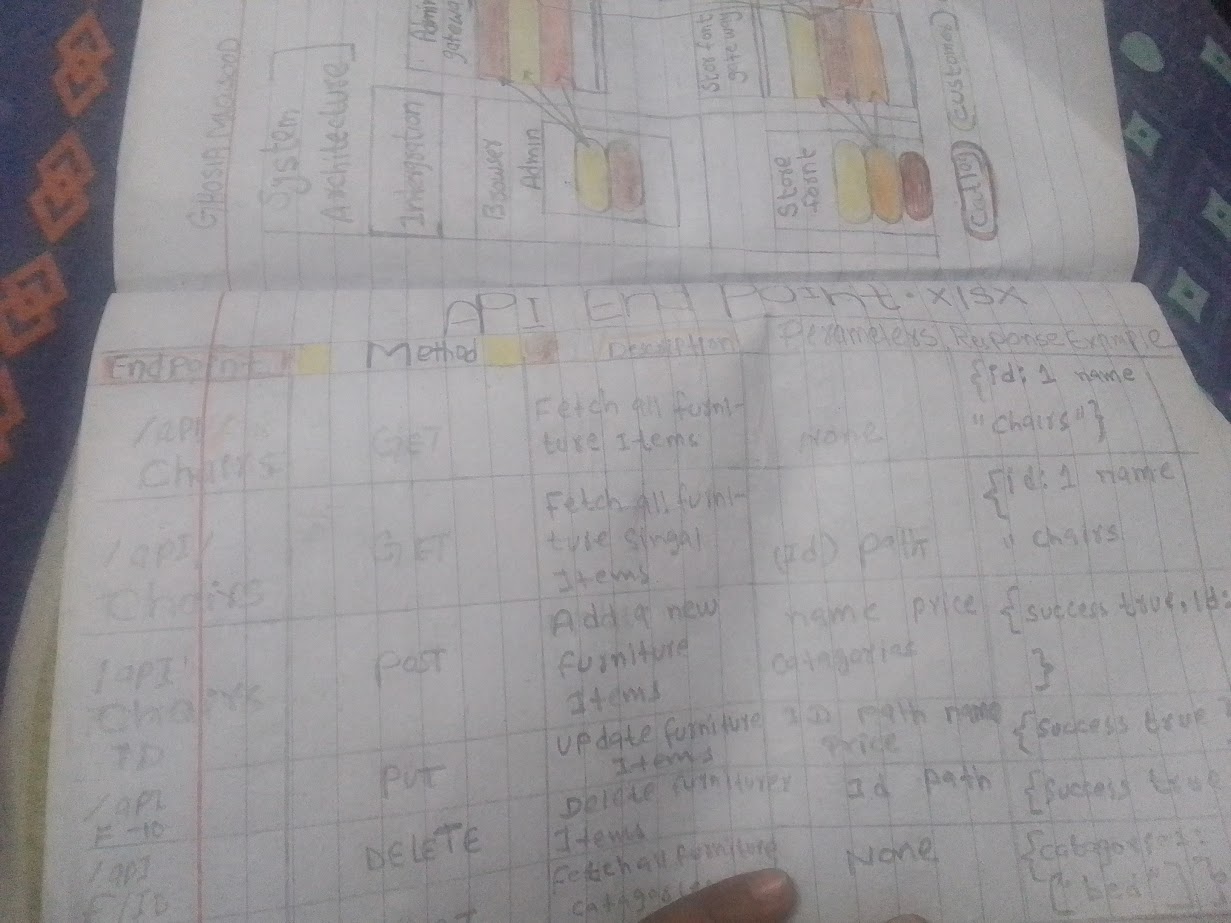 GHOSIA MAQSOOD
System
Architecture
Intergration
Bowser
Admin
Admin
gatewa
Store
fornt
Stor font
gateway
Catlog
Customer
API End Point.xlsx
Endpoint Method Description Perameters Reponse Example
/api
Chairs
GET
Fetch all furni-
ture Items
None
{id: 1 name
"Chairs"}
/api/
Chairs
GET
Fetch all furni-
ture singal
Items
(Id) path
{id: 1 name
" chairs
/api
Chairs
POST
Add a new
furniture
Items
name price
catagories
{success true, id:
}
ID
/api
PUT
update furniture
Items
ID path name
Price
{success true
/api
DELETE
Delete furniturer
Items
Id path
{success true
Fetch all furniture
None
["bed"]